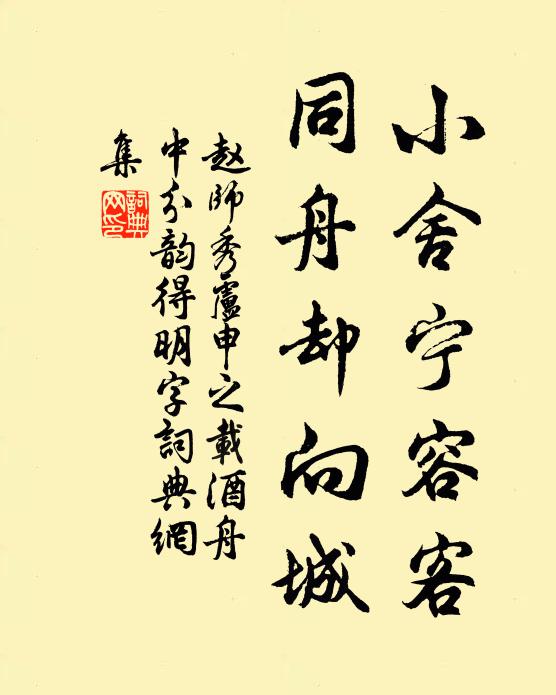 小舍宁容客
同舟却向城
赵师秀盧申之載酒舟
中分韵得明字詞典網
集
詞典網印